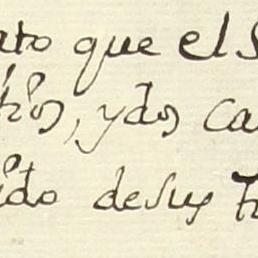 ato que el S
tros, y dos Ca
ido de sus